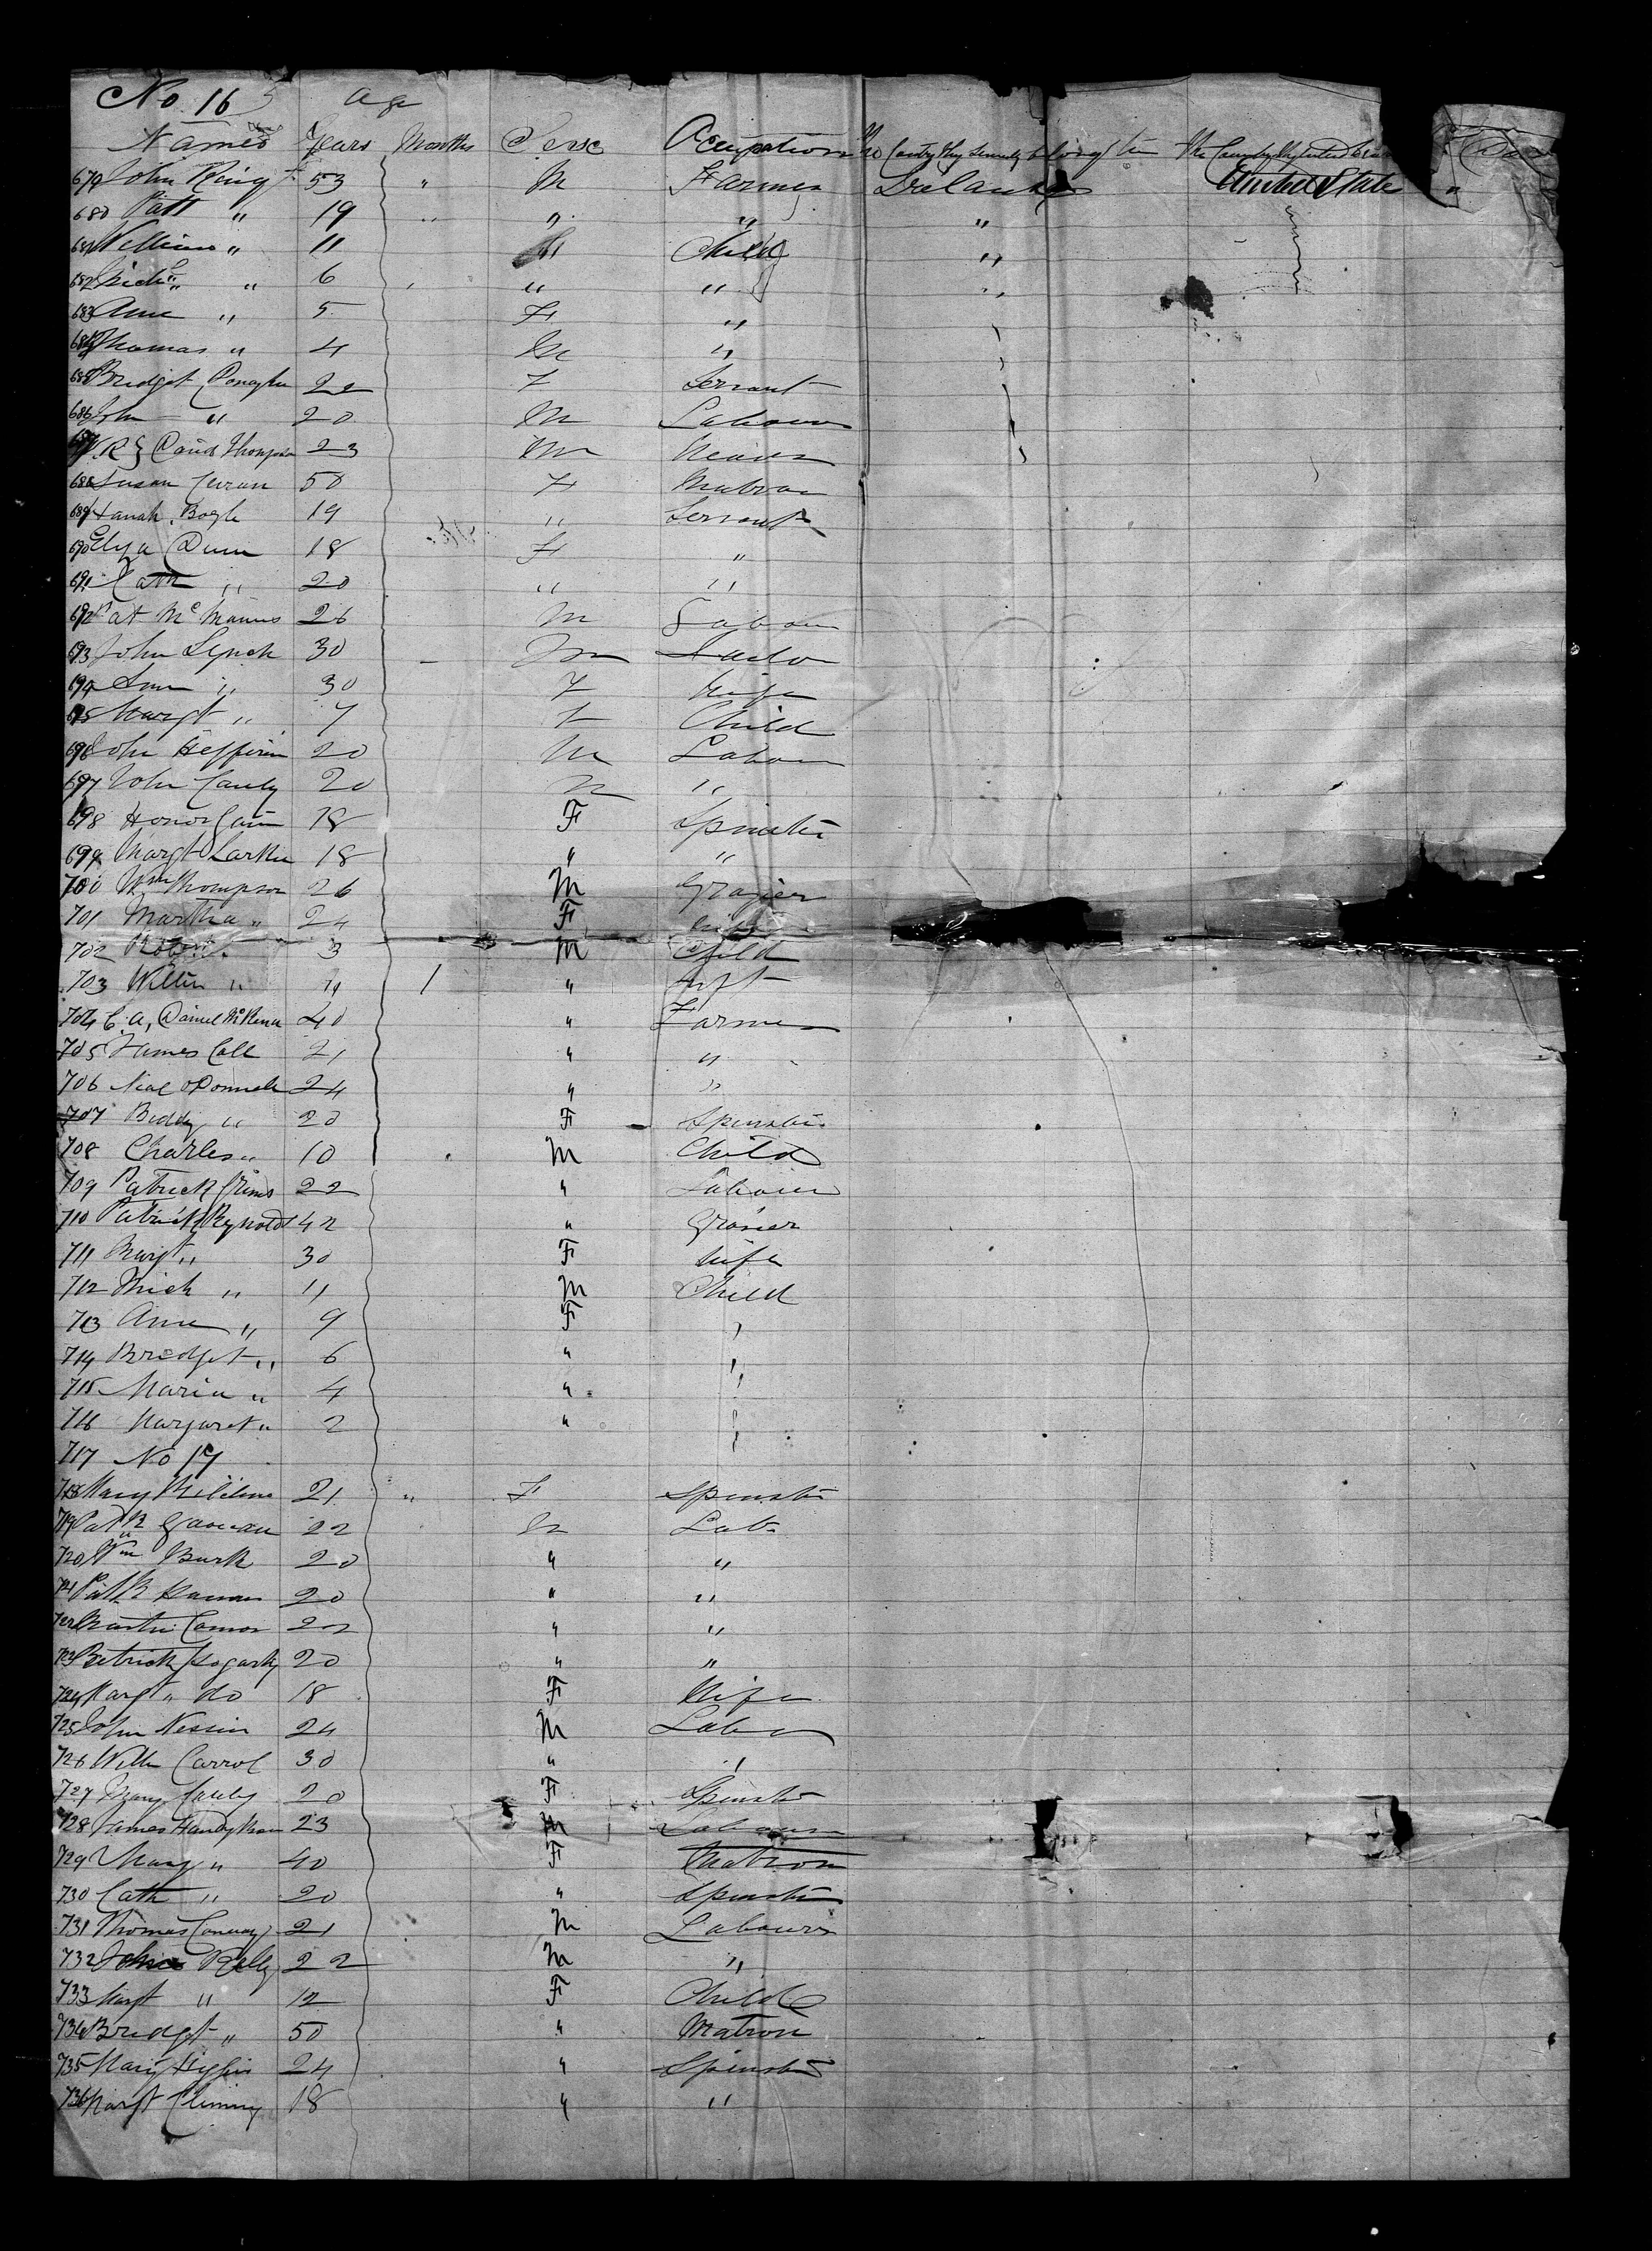 No 16 Age
Names Years Months Sexe Occupation The Country they belong to The Country
679 John King 53 " M Farmer Ireland United State "
680 Patt " 19 " " " "
681 William " 11 M Child "
682 Mich " 6 " " "
683 Ann " 5 F "
684 Thomas " 4 M "
685 Bridget 22 F Servant
686 John " 20 M Labour
687 David Thompson 23 M
688 Susan Curran 50 F Matron
689 Hanah Bogle 19 " Servant
690 Elyza Dunn 18 F "
691 Cath " 20 " "
692 Pat McManus 26 M Labour
693 John Lynch 30 M
694 Ann " 30 F Wife
695 Margt " 7 F Child
696 John Hefferin 20 M Labour
697 John Cauly 20 M "
698 Honor 18 F Spinster
699 Margt Larkin 18 " "
700 Wm Thompson 26 M Grazier
701 Martha " 24 F Wife
702 Robert " 3 M Child
703 Willm " " 1 " Inft
704 C. A, Daniel McKena 40 " Farmer
705 James Call 21 " "
706 Nial ODonnell 24 " "
707 Biddy " 20 F Spinster
708 Charles " 10 M Child
709 Patrick 22 " Labour
710 Patrick Reynolds 42 " Grasier
711 Margt " 30 F Wife
712 Mich " 11 M Child
713 Ann " 9 F "
714 Bridget " 6 " "
715 Maria " 4 " "
716 Margaret " 2 " "
717 No 17
718 Mary 21 " F Spinster
719 Patk 22 M Lab
720 Wm Burk 20 " "
721 Patk 20 " "
722 Martin Connor 22 " "
723 Betrick Hogarty 20 " "
724 Margt " do 18 F Wife
725 John Nessin 24 M Labor
726 Willm Carrol 30 " "
727 Mary Cauley 20 F Spinster
728 James 23 M Labour
729 Mary " 40 F Matron
730 Cath " 20 " Spinster
731 Thomas Conway 21 M Labour
732 John Relly 22 M "
733 Margt " 12 F Child
734 Bridget " 50 " Matron
735 Mary Higgins 24 " Spinster
736 Margt 18 " "